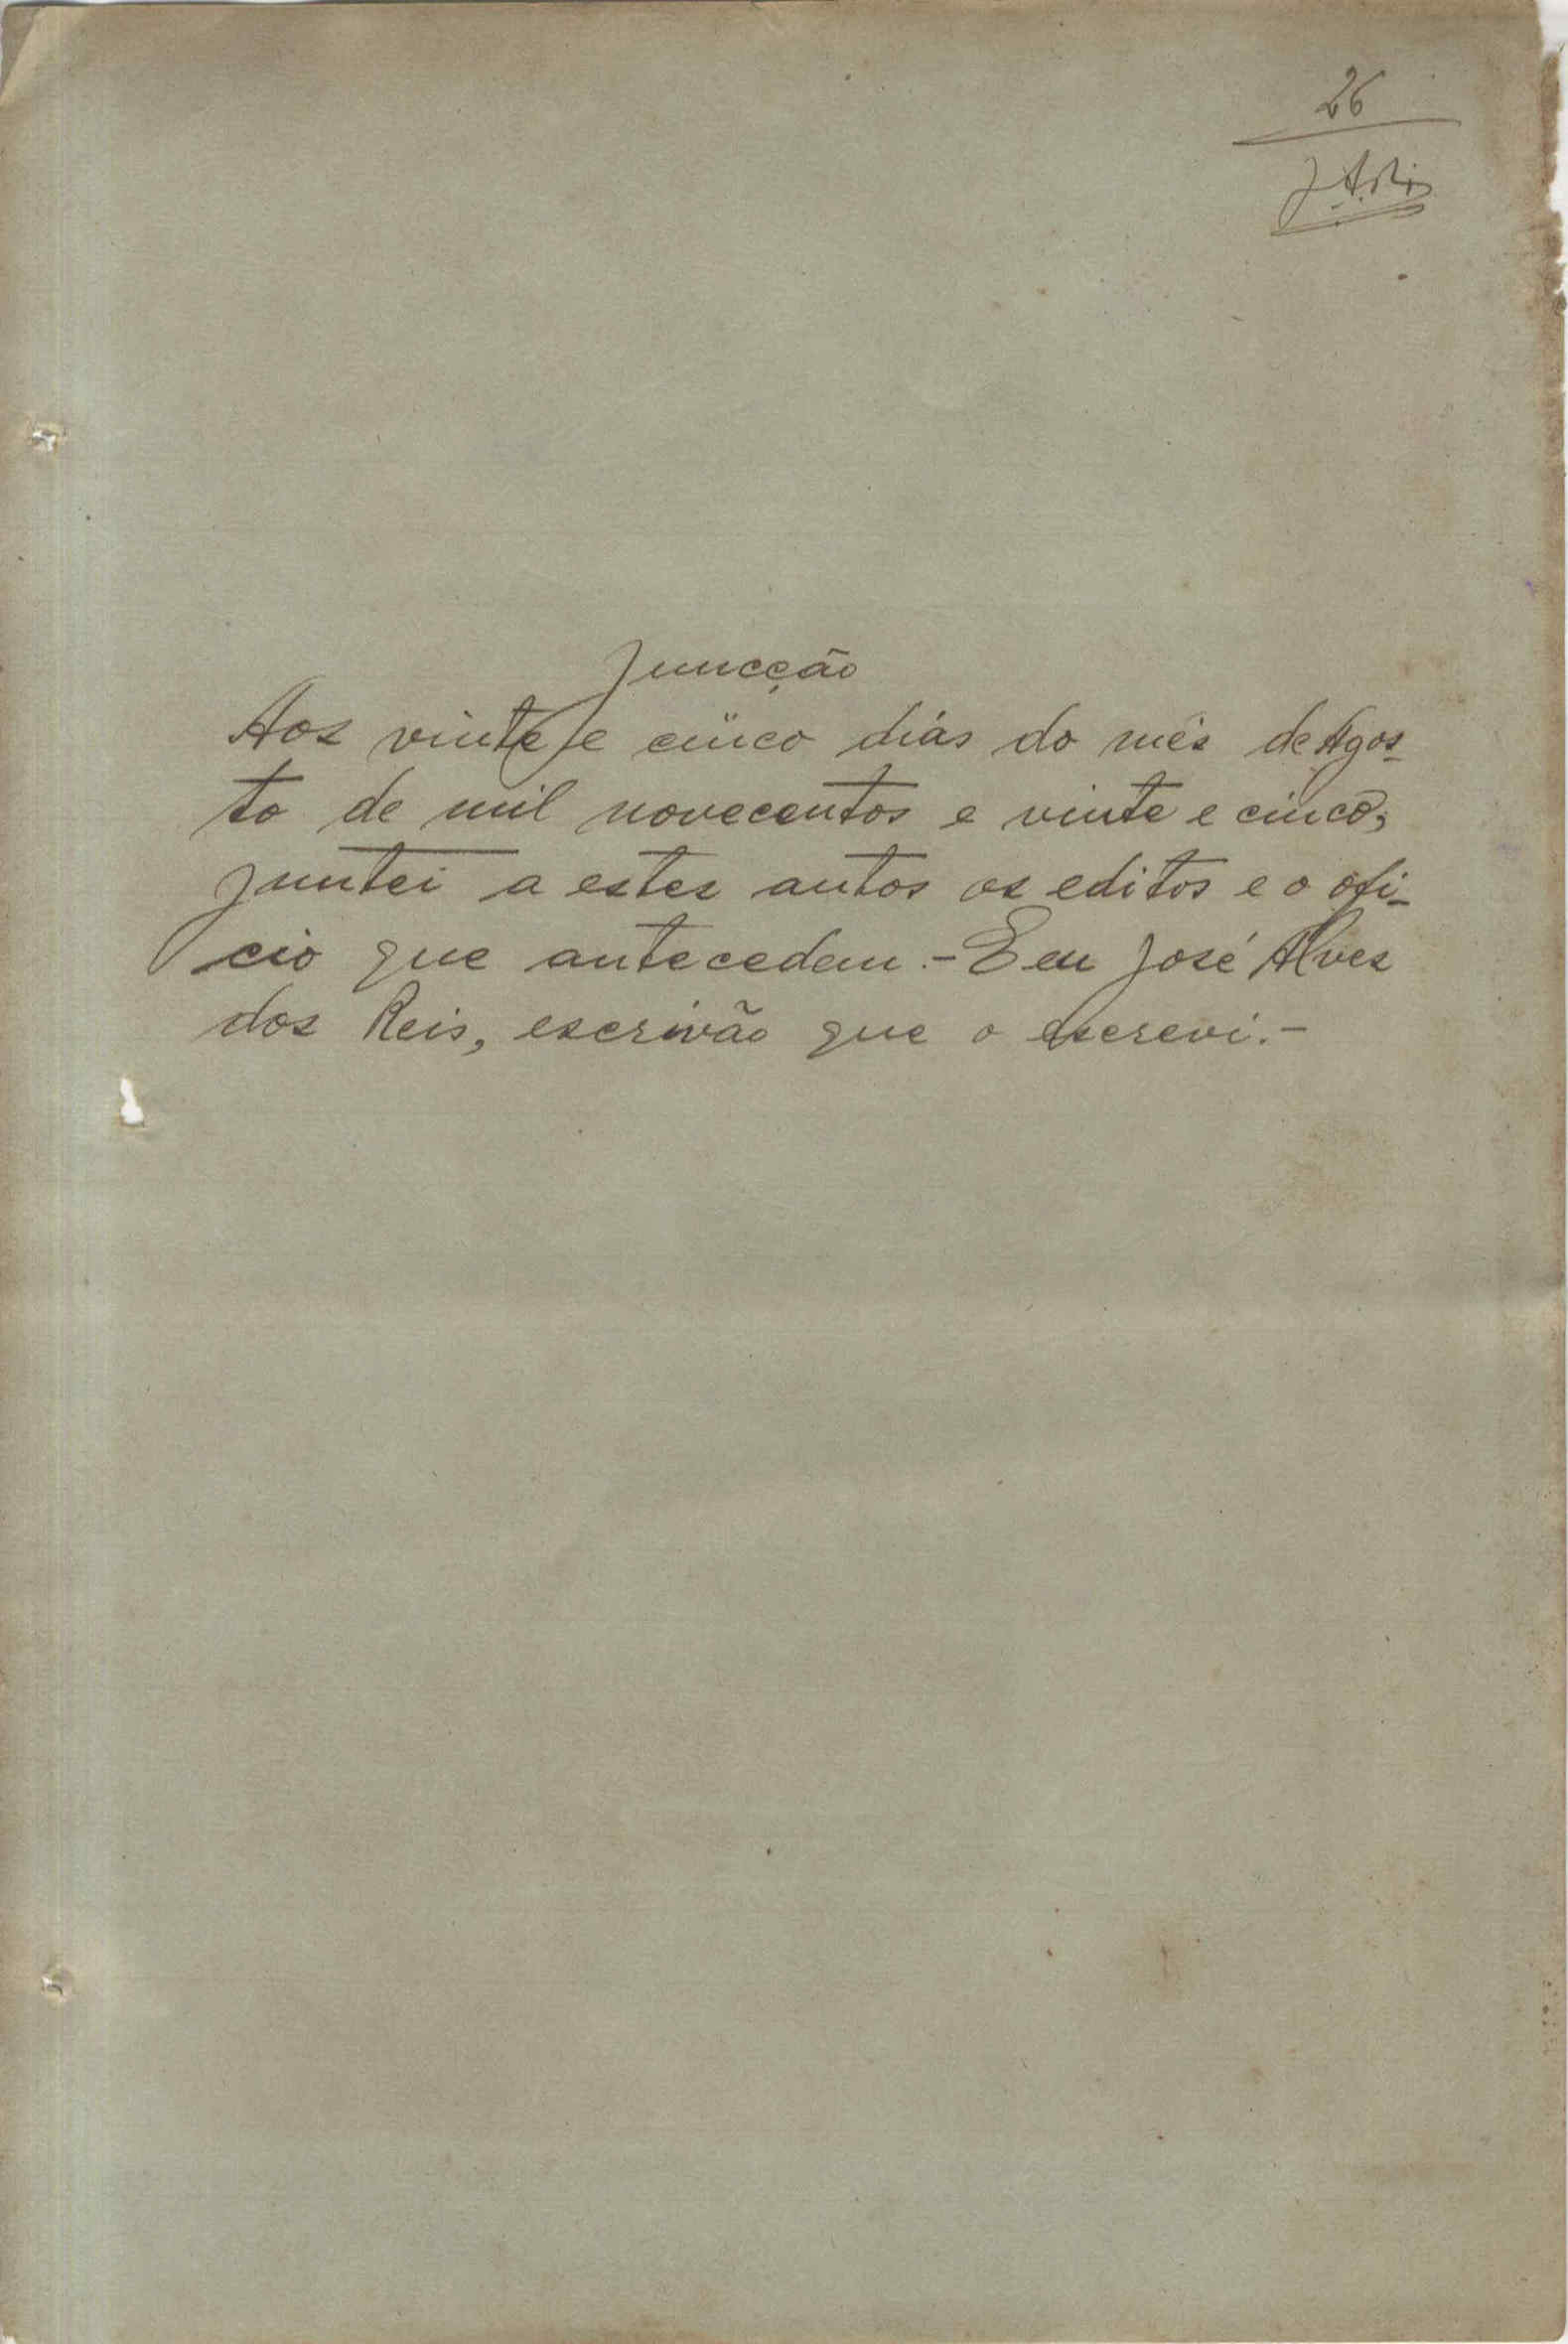 26
J.A.Reis
Juncção
Aos vinte e cinco dias do mês de Agos-
to de mil novecentos e vinte e cinco,
juntei a estes autos os editos e o ofi-
cio que antecedem.- E eu José Alves
dos Reis, escrivão que o escrevi.-